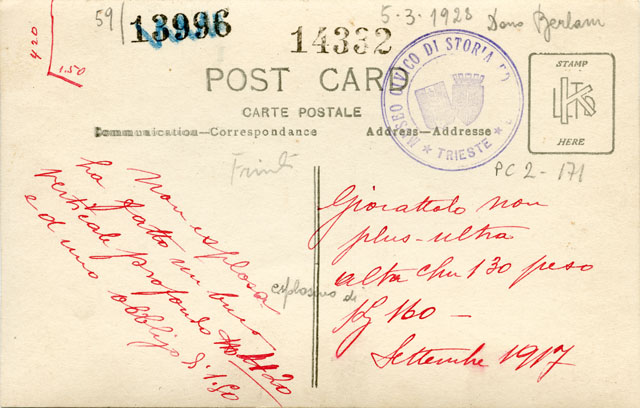 59/ 13996
14332
5-3-1923 Dono Berlam
420
1.50
POST CARD
CARTE POSTALE
Communication—Correspondance
Address—Addresse
MUSEO CIVICO DI STORIA ED
★ TRIESTE ★
STAMP
HERE
PC 2-171
non esplosa
ha fatto un buco
verticale profondo 4.20
ed uno obbliquo di 1.50
esplosivo di
Giocattolo non
plus-ultra
alta cm 130 peso
Kg 160 —
Settembre 1917